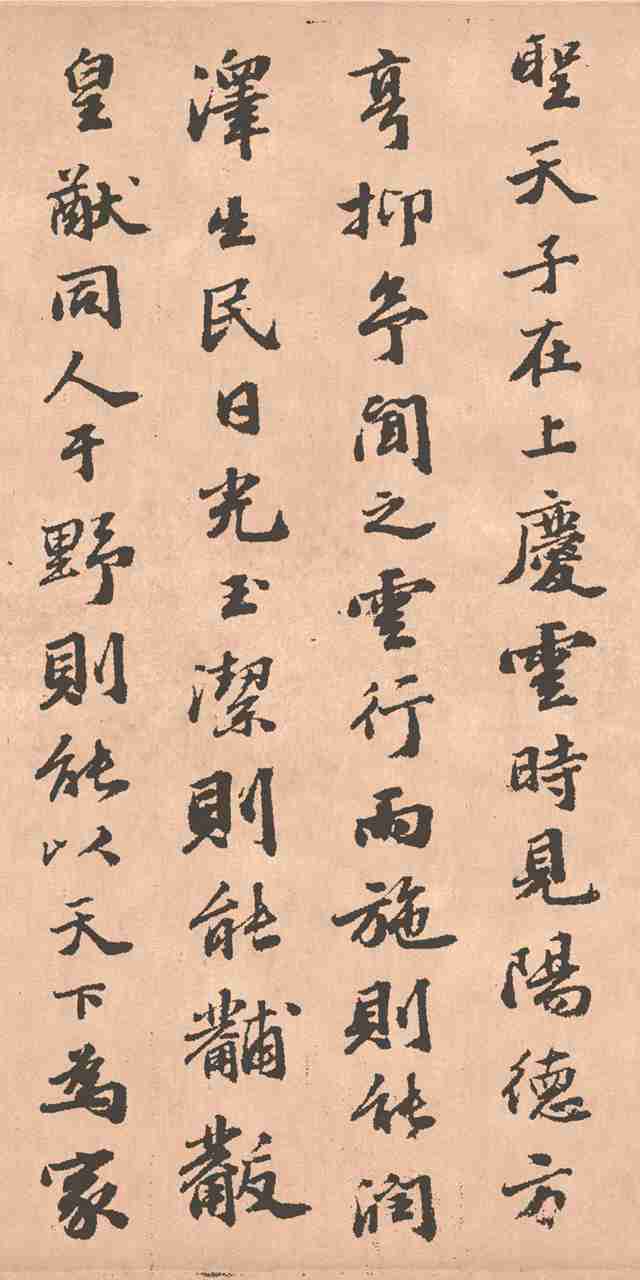 聖天子在上慶雲時見陽德方
亨抑予聞之雲行雨施則能潤
澤生民日光玉潔則能黼黻
皇猷同人于野則能以天下為家